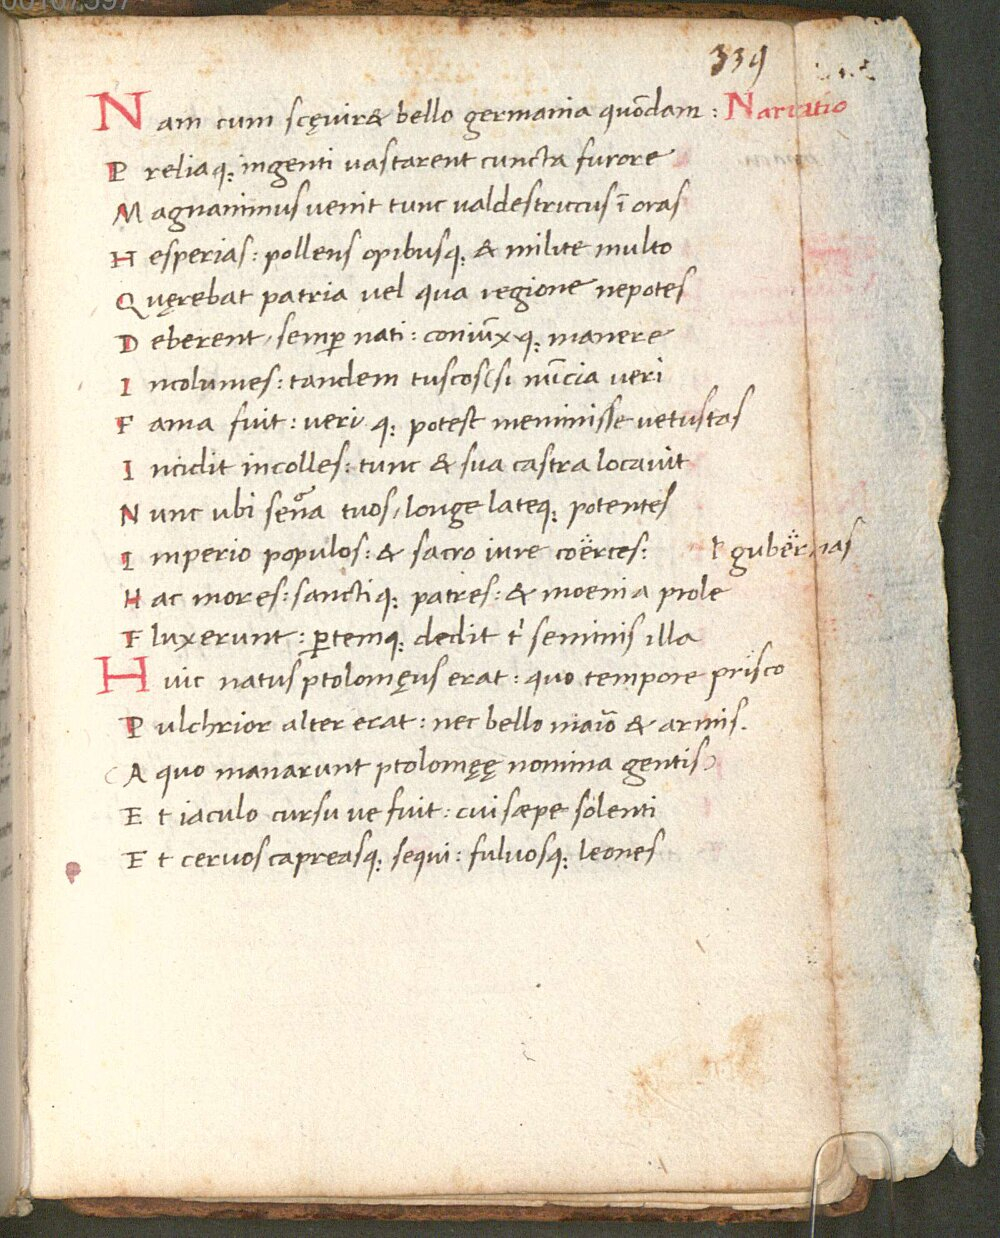 339
Nam cum scęuir& bello germania quōdam : Narratio
Preliaq; ingenti vastarent cuncta furore
Magnanimus venit tunc valdestruccus ī oras
Hesperias : pollens opibusq; & milite multo
Quęrebat patria vel qua regione nepotes
Deberent, semper nati : coniūxq; manere
Incolumes : tandem tuscos (si nūcia veri
Fama fuit : veri q; potest meminisse vetustas
Incidit incolles : tunc & sua castra locauit
Nunc ubi sena tuos, longe lateq; potentes
Imperio populos : & sacro iure coërces : ł gubërnas
Hac mores : sanctiq; patres : & moenia prole
Fluxerunt : ꝑtemq; dedit t' seminis illa
Huic natus ptolomęus erat : quo tempore prisco
Pulchrior alter erat : nec bello maiō & armis.
(A quo manarunt ptolomęę nomina gentis)
Et iaculo cursu ve fuit : cui sæpe solenti
Et ceruos capreasq; sequi : fuluosq; leones